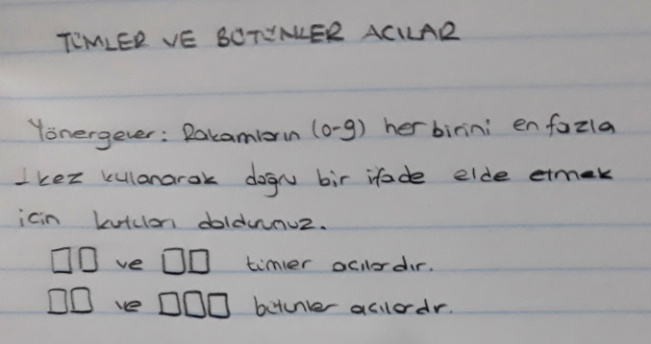 TÜMLER VE BÜTÜNLER AÇILAR
Yönergeler: Rakamların (0-9) her birini en fazla
1 kez kulanarak doğru bir ifade elde etmek
için kutuları doldurunuz.
□□ ve □□ tümler açılardır.
□□ ve □□□ bütünler açılardır.